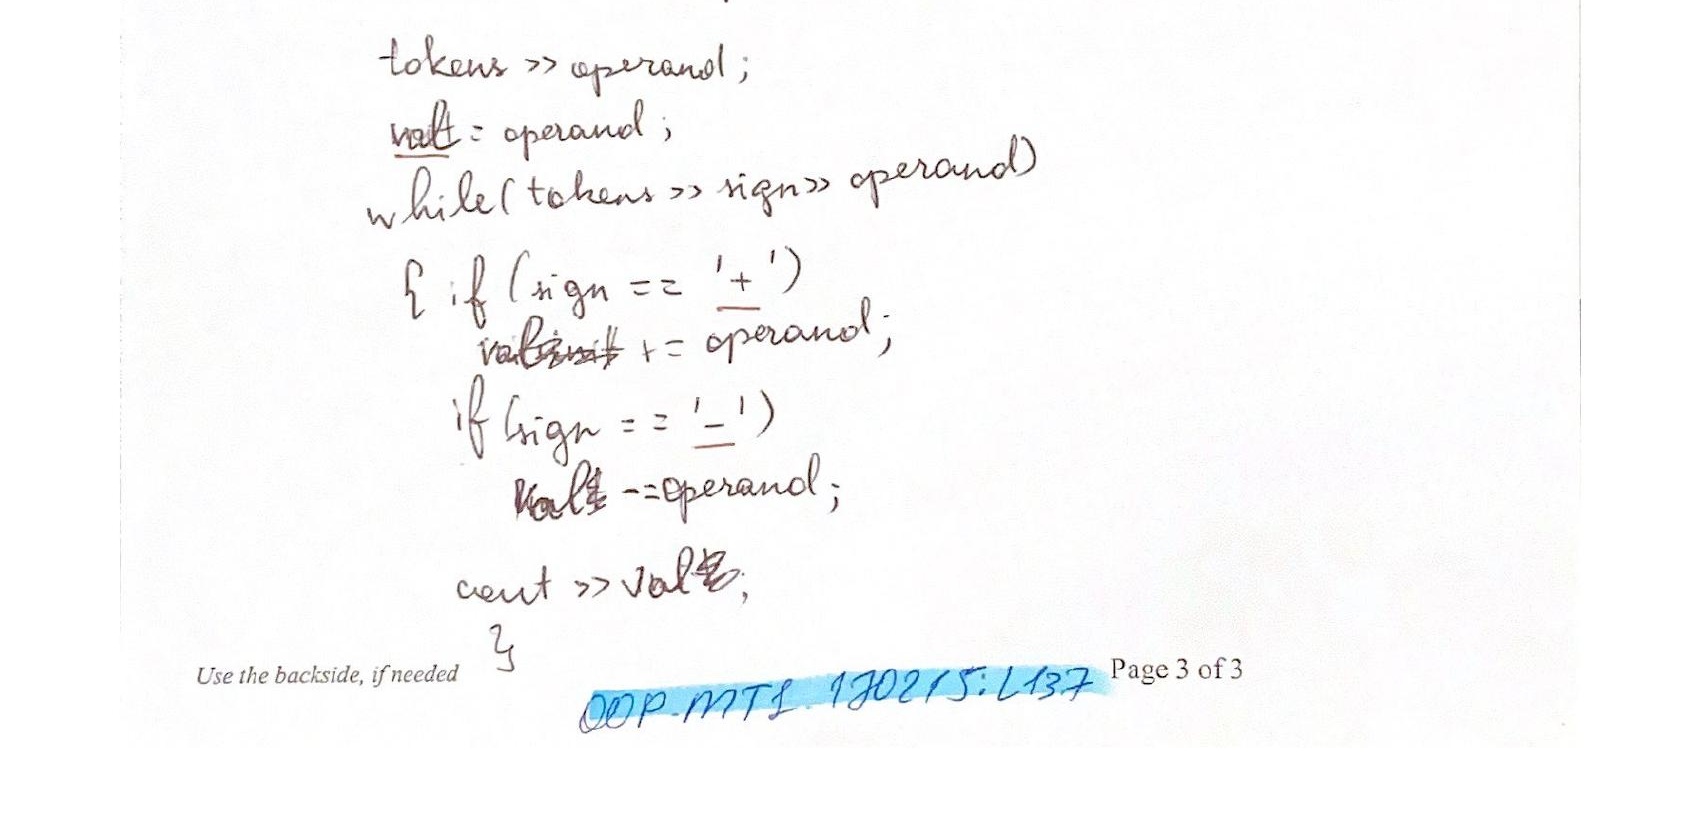 tokens >> operand;
val = operand;
while(tokens >> sign >> operand)
{ if (sign == '+')
val += operand;
if (sign == '-')
val -= operand;
cout >> val;
}
Use the backside, if needed
Page 3 of 3
OOP-MT1.170215:L137